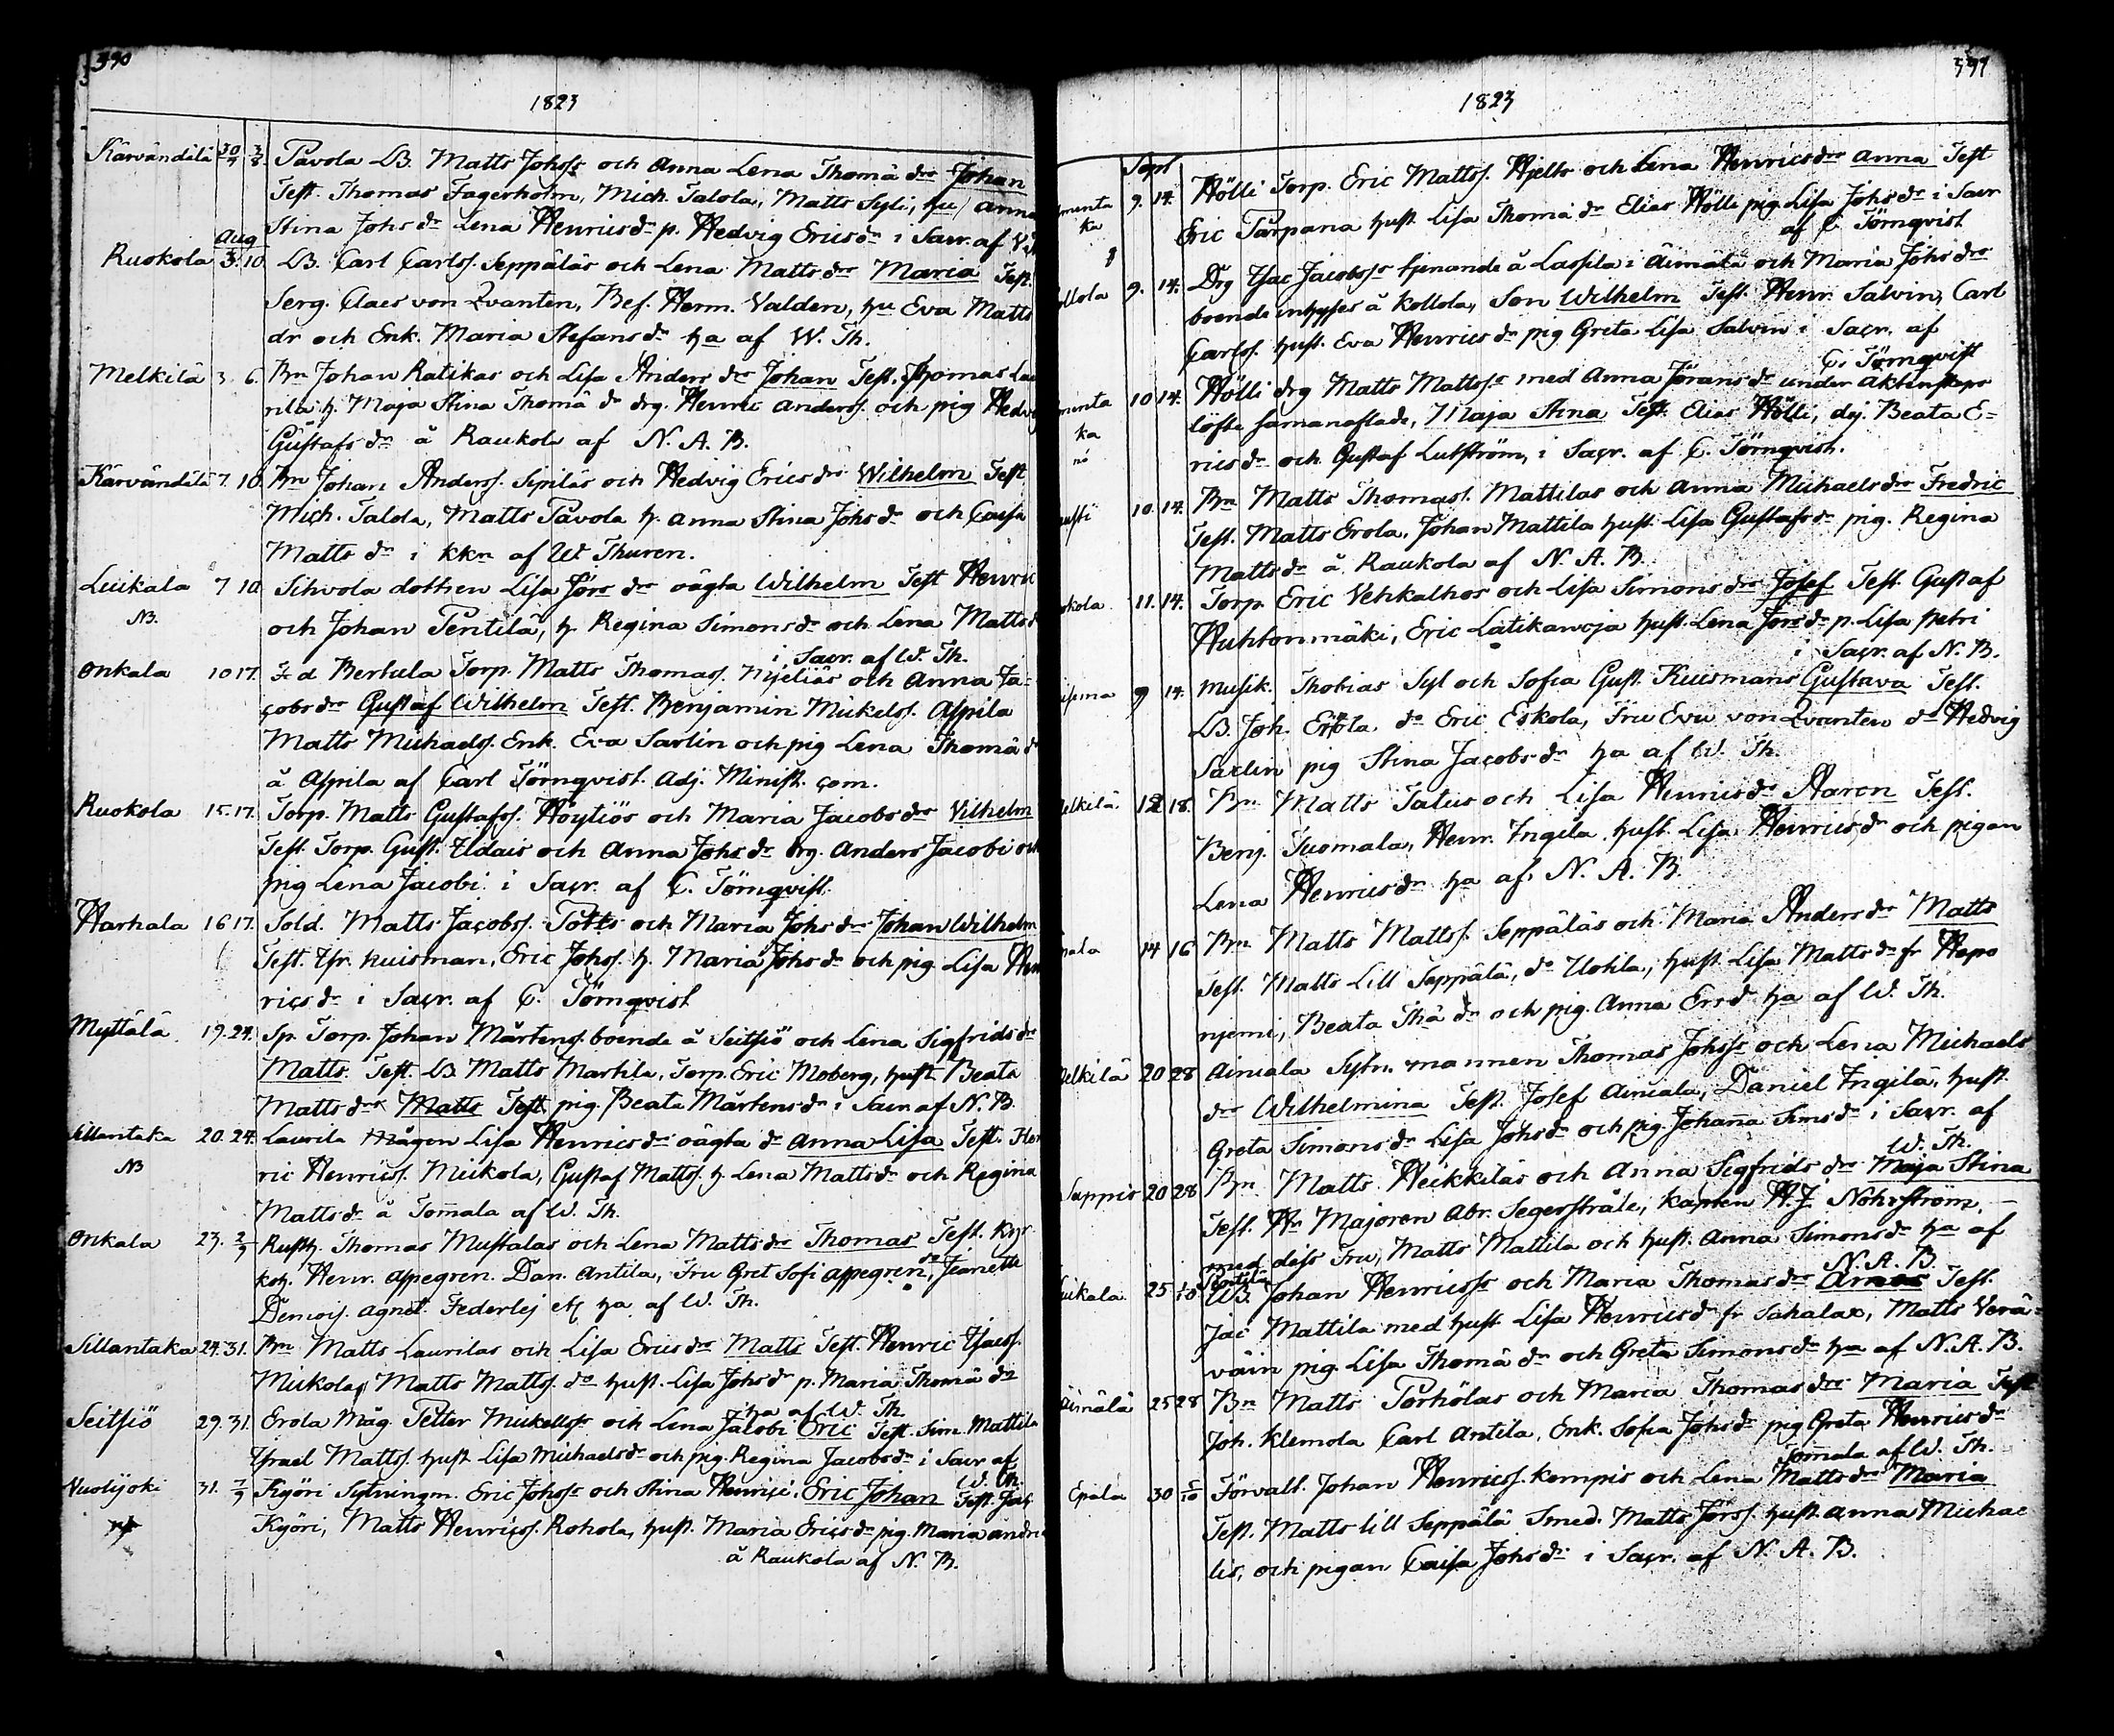 390
1823
Kärvändilä 30/7 3/8 Pavola LB. Matts Johss och Anna Lena Thomä dr Johan
Test. Thomas Fagerholm, Mich. Talola, Matts Syli, hu Anna
Stina Johs dr Lena Henricsdr p. Hedvig Ericsdr i Sacr. af
Aug
Ruokola 3. 10 LB. Carl Carlss. Seppäläs och Lena Matts dr Maria Test.
Serg. Claes von Qvanten, Bef. Herm. Valden, hu Eva Matts
dr och Enk. Maria Stefans dr ha af W. Th.
Melkilä 3 6. Bn Johan Ratikas och Lisa Anders dr Johan Test. Thomas Lau
rila h. Maja Stina Thomä dr drg. Henric Anderss. och pig Hedvig
Gustafs dr å Raukola af N. A. B.
Kärvändilä 7. 10. Bn Johan Anderss. Sipiläs och Hedvig Erics dr Wilhelm Test
Mich. Talola, Matts Pavola h. Anna Stina Johs dr och Caisa
Matts dr i kkn af W Thuren.
Luikala 7 10 Sihvola dottren Lisa Jörs dr oägta Wilhelm Test Henric
NB. och Johan Pentilä, h. Regina Simons dr och Lena Matts d
i Sacr. af W. Th.
Onkala 10 17. Bertula Torp. Matts Thomass. Nyeliäs och Anna Ja-
cobs dr Gustaf Wilhelm Test. Benjamin Mickelss. Aspila
Matts Michaelss. Enk. Eva Sarlin och pig Lena Thomä d
å Aspila af Carl Törnqvist. Adj. Minist. com.
Ruokola 15. 17. Torp. Matts Gustafss. Höytiös och Maria Jacobs dr Vilhelm
Test. Torp. Gust. Udais och Anna Johs dr drg. Anders Jacobi och
pig Lena Jacobi i Sacr. af C. Törnqvist.
Harhala 16 17. Sold. Matts Jacobss. Potts och Maria Johs dr Johan Wilhelm
Test. kuisman, Eric Johss. h. Maria Johs dr och pig. Lisa Hen
rics dr i Sacr. af C. Törnqvist
Myttälä 19. 24. Sp. Torp. Johan Mårtenss. boende å Seitsiö och Lena Sigfrids dr
Matts. Test. LB Matts Martila, Torp. Eric Moberg, hust. Beata
Matts dr Matts Test. pig. Beata Mårtens dr i Sacr. af N. B.
Sillantaka 20. 24. Laurila Mågen Lisa Henrics dr oägta dr Anna Lisa Test. Hen
NB ric Henricss. Mickola, Gustaf Mattss. h. Lena Matts dr och Regina
Matts dr å Tomala af W. Th.
Onkala 23. 2/9 Rusth. Thomas Mustalas och Lena Matts dr Thomas Test.
Henr. Appegren. Dan. Antila, Fru Gret Sofi Appegren, Jeanette
Demois. Agnet. Federlej etc ha af W. Th.
Sillantaka 24. 31. Bn Matts Laurilas och Lisa Erics dr Matts Test. Henric Isacss.
Mickola, Matts Mattss. do hust. Lisa Johs dr p. Maria Thomä dr
ha af W. Th.
Seitsiö 29. 31. Erola Måg. Petter Mickellss och Lena Jacobi Eric Test. Sim. Mattila
Israel Mattss. hust Lisa Michaels dr och pig. Regina Jacobs dr i Sacr af
W. Th.
Vuolijoki 31. 7/9 Kyöri Sytningm. Eric Johss och Stina Henrici Eric Johan Test.
Kyöri, Matts Henricss. Rokola, hust. Maria Erics dr pig. Maria
å Raukola af N. B.
391
1823
Sept
menta 9. 14. Hölli Torp. Eric Mattss. Hjelts och Lena Henrics dr Anna Test
ka Eric Tarpana hust. Lisa Thomä dr Elias Hölli pig. Lisa Johs dr i Sacr
af C Törnqvist
ollola 9. 14. Drg Isac Jacobss tjenande å Laspila i Äimälä och Maria Johs dr
boende inhyses å Kollola, Son Wilhelm Test. Henr. Salvin, Carl
Carlss. hust. Eva Henrics dr pig Greta Lisa Salvin i Sacr. af
C. Törnqvist
menta 10 14. Hölli drg Matts Mattss med Anna Jörans dr under Äktenskaps
ka löfte samanaflade, Maja Stina Test. Elias Hölli, dej. Beata E-
rics dr och Gustaf Lutström, i Sacr. af C. Törnqvist.
10. 14. Bn Matts Thomass. Mattilas och Anna Michaels dr Fredric
Test. Matts Erola, Johan Mattila hust. Lisa Gustafs dr pig. Regina
Matts dr å Raukola af N. A. B.
okola 11. 14. Torp. Eric Vehkalhos och Lisa Simons dr Josef Test. Gustaf
Huhtonmäki, Eric Latikanoja hust. Lena Jörs dr p. Lisa Petri
i Sacr. af N. B.
9 14. Musik. Thobias Syl och Sofia Gust. Kuismans Gustava Test.
LB. Joh. Erola, do Eric Eskola, Fru Eva von Qvanten do Hedvig
Sarlin pig Stina Jacobs dr ha af W. Th.
elkilä 12 18. Bn Matts Tatus och Lisa Henrics dr Aaron Test.
Benj. Tuomala, Henr. Ingila, hust. Lisa Henrics dr och pigan
Lena Henrics dr ha af N. A. B.
pala 14 16 Bn Matts Mattss. Seppäläs och Maria Anders dr Matts
Test. Matts Lill Seppälä, do Uotila, hust. Lisa Matts dr fr Hapo
njemi, Beata Thä dr och pig. Anna Ers d ha af W. Th.
elkilä 20 28 Aimala Sytn. mannen Thomas Johss och Lena Michaels
dr Wilhelmina Test. Josef Aimala, Daniel Ingilä, hust.
Greta Simons dr Lisa Johs dr och pig. Johana Sims dr i Sacr. af
W. Th.
Sappis 20 28 Bn Matts Heikkiläs och Anna Sigfrids dr Maja Stina
Test. Hr Majoren Abr. Segerstråle, kapten H. J. Nohrström,
med dess Fru, Matts Mattila och hust. Anna Simons dr ha af
N. A. B.
uikala 25 Pentilä LB. Johan Henricss och Maria Thomas dr Test.
Jac Mattila med hust Lisa Henrics dr fr Sahalax, Matts Verä-
väin pig. Lisa Thomä dr och Greta Simons dr ha af N. A. B.
Äimälä 25 28 Bn Matts Torhölas och Maria Thomas dr Maria Test
Joh. Klemola Carl Antila, Enk. Sofia Johs dr pig Greta Henrics dr
Tomala af W. Th.
Epala 30 5/10 Förvalt. Johan Henricss. Kempis och Lena Matts dr Maria
Test. Matts lill Seppälä Smed. Matts Jörss. hust. Anna Michae
lis, och pigan Caisa Johs dr i Sacr. af N. A. B.